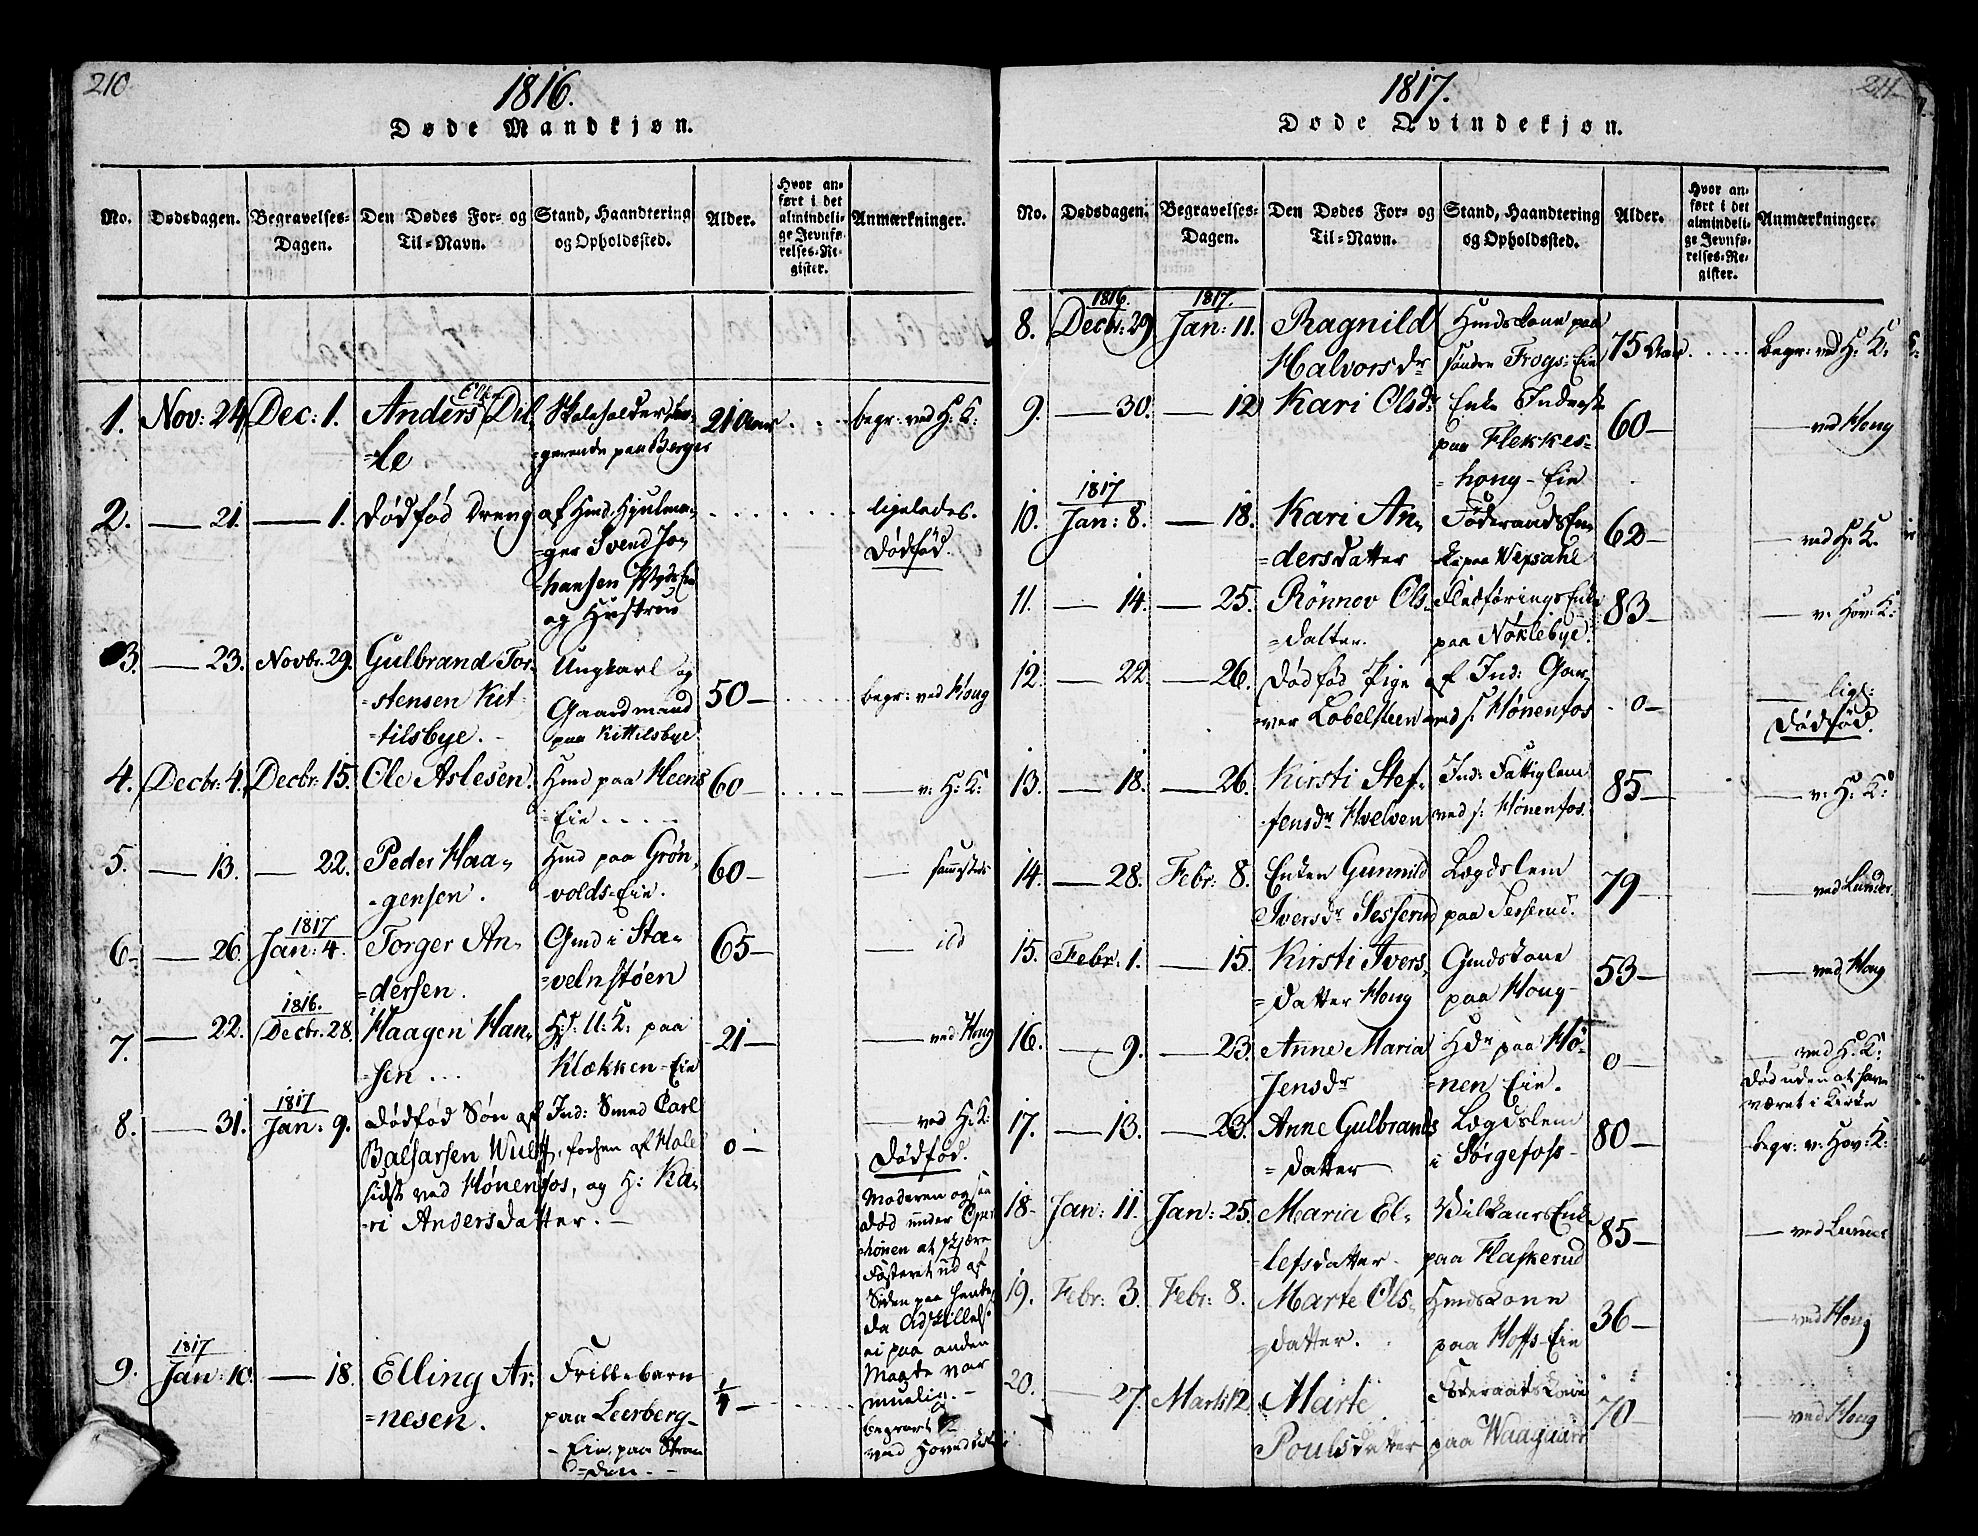 210.
1816.
Døde Mandkjøn.
No.
Dødsdagen.
Begravelses-
Dagen.
Den Dødes For- og
Til-Navn.
Stand, Haandtering
og Opholdssted.
Alder.
Hvor an-
ført i det
almindeli-
ge Jevnfø-
relses-Re-
gister.
Anmærkninger.
1. Nov: 24 Dec: 1. Anders Dil-
=le
Skoleholder
=gerende paa Berger
21 Aar
begr: ved H: K:
2. — 21. — 1. Dødfød Dreng
af Hmd. Hjulma-
=ger Svend Jo-
=hansen
og Hustrue
ligeledes.
Dødfød.
3. — 23. Novbr. 29. Gulbrand Tor-
=stensen Kit-
=tilsbye.
Ungkarl og
Gaardmand
paa Kittilsbye
50 —
begr: ved Houg
4. Decbr: 4. Decbr: 15. Ole Aslesen.
Hmd paa Heens
=Eie
60 —
— v: H: K:
5. — 13. — 22. Peder Haa-
=gensen.
Hmd paa Grøn-
volds-Eie.
60 —
— sammesteds
6. — 26. 1817 Jan: 4. Torger An-
=dersen.
Gmd i Sta-
=velnstøen
65 —
— ild
7. — 22. 1816. Decbr. 28. Haagen Han-
=sen
H: S: U: K: paa
Klækken-Eie
21 —
— ved Houg
8. — 31. 1817 Jan: 9. Dødfød Søn af Ind: Smed Carl
Balsarsen Wulff, fochsen af Hole
sidst ved Hønenfos, og H: Ka-
=ri Andersdatter. —
0 —
— ved H: K:
Dødfød.
Moderen ogsaa
død under Oper
tionen at skjære
Fosteret ud af
Siden paa hende
da Adskillelse
ei paa anden
Maade var
muelig. —
begravet
ved Hovedkirke
9. 1817 Jan: 10. — 18. Elling Ar-
=nesen.
Frillebarn
paa Leerberg-
=Eie, paa Stran
=den. —
1/4 —
211
1817.
Døde Qvindekjøn.
No.
Dødsdagen.
Begravelses-
Dagen.
Den Dødes For- og
Til-Navn.
Stand, Haandtering
og Opholdssted.
Alder.
Hvor an-
ført i det
almindeli-
ge Jevnfø-
relses-Re-
gister.
Anmærkninger.
8. 1816. Decbr: 29. 1817. Jan: 11. Ragnild
Halvorsdr
Hmdskone paa
søndre Frogs-Eie
75 Aar
begr: ved H: K:
9. — 30. — 12 Kari Olsdr
Enke Inderst
paa Flekkes-
=houg-Eie
60 —
— ved Houg
10. 1817 Jan: 8. — 18. Kari An-
=dersdatter
FøderaadsEn
ke paa Vepsahl
62 —
— ved H: K.
11. — 14. — 25. Rønnov Ols-
=datter.
Fledførings Enke
paa Nøklebye.
83 —
— v: Hov: K:
12. — 22. — 26. Dødfød Pige af Ind: Gar-
ver Lobelsteen ved s: Hønenfos
0 —
— lige:
Dødfød.
13. — 18. — 26. Kirsti Stef-
=fensdr Hvelven
Ind: Fattiglem
ved s: Hønenfos.
85 —
— v: H: K:
14. — 28. Febr: 8. Enken Gunnild
Iversdr Sesserud
Lægdslem
paa Sesserud.
79 —
— ved Lunder
15. Febr: 1. — 15. Kirsti Ivers-
=datter Houg
Gmdskone
paa Houg-
53 —
— ved Houg
16. — 9. — 23. Anne Maria
Jensdr
Hdr paa Hø-
=nen Eie.
0 —
— ved H: K:
Død uden at have
været i Kirke
17. — 13. — 23. Anne Gulbrands
=datter
Lægdslem
i Sørgefoss-
80 —
begr: v: Hov: K:
18 Jan: 11. Jan: 25. Maria El-
=lefsdatter
VilkaarsEnke
paa Flaskerud
85 —
— ved Lunder
19. Febr: 3. Febr: 8. Marte Ols-
=datter.
Hmdskone
paa Hoffs-Eie
36 —
— ved Houg
20. — 27. Marts 12. Marte
Poulsdatter
Føderaadskone
paa Waagaard
70 —
— ved Houg